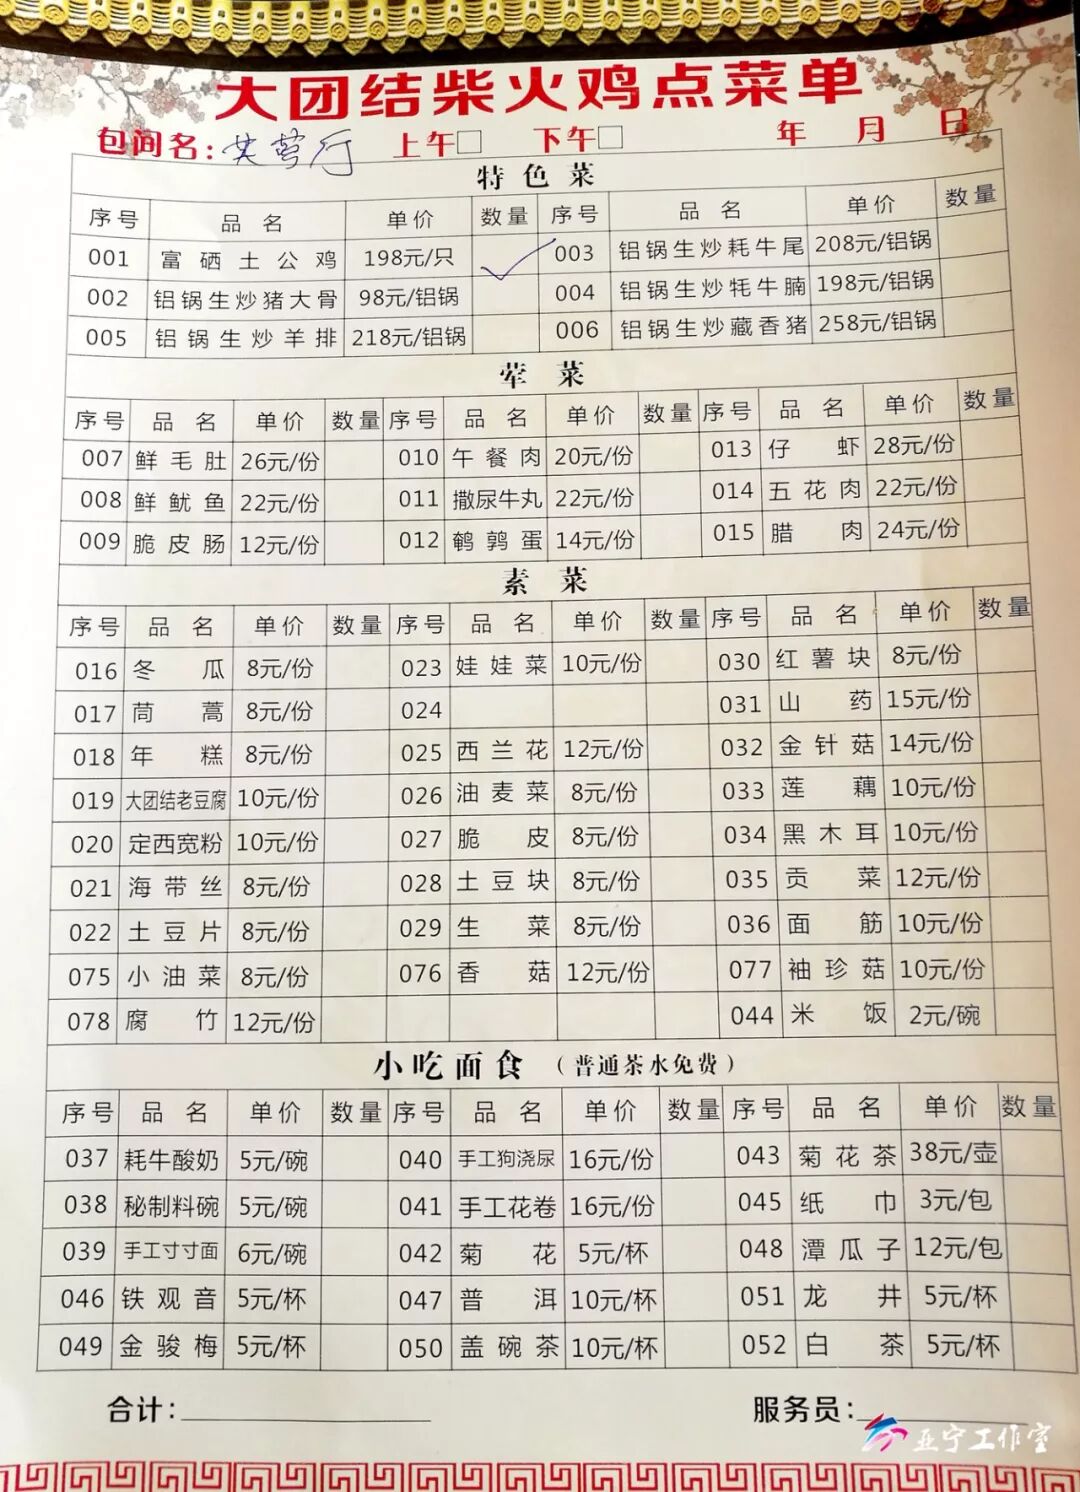 大团结柴火鸡点菜单
包间名: 芙蓉厅 上午□ 下午□ 年 月 日
特色菜
序号 品名 单价 数量 序号 品名 单价 数量
001 富硒土公鸡 198元/只 003 铝锅生炒耗牛尾 208元/铝锅
002 铝锅生炒猪大骨 98元/铝锅 004 铝锅生炒牦牛腩 198元/铝锅
005 铝锅生炒羊排 218元/铝锅 006 铝锅生炒藏香猪 258元/铝锅
荤菜
序号 品名 单价 数量 序号 品名 单价 数量 序号 品名 单价 数量
007 鲜毛肚 26元/份 010 午餐肉 20元/份 013 仔虾 28元/份
008 鲜鱿鱼 22元/份 011 撒尿牛丸 22元/份 014 五花肉 22元/份
009 脆皮肠 12元/份 012 鹌鹑蛋 14元/份 015 腊肉 24元/份
素菜
序号 品名 单价 数量 序号 品名 单价 数量 序号 品名 单价 数量
016 冬瓜 8元/份 023 娃娃菜 10元/份 030 红薯块 8元/份
017 茼蒿 8元/份 024 031 山药 15元/份
018 年糕 8元/份 025 西兰花 12元/份 032 金针菇 14元/份
019 大团结老豆腐 10元/份 026 油麦菜 8元/份 033 莲藕 10元/份
020 定西宽粉 10元/份 027 脆皮 8元/份 034 黑木耳 10元/份
021 海带丝 8元/份 028 土豆块 8元/份 035 贡菜 12元/份
022 土豆片 8元/份 029 生菜 8元/份 036 面筋 10元/份
075 小油菜 8元/份 076 香菇 12元/份 077 袖珍菇 10元/份
078 腐竹 12元/份 044 米饭 2元/碗
小吃面食 (普通茶水免费)
序号 品名 单价 数量 序号 品名 单价 数量 序号 品名 单价 数量
037 耗牛酸奶 5元/碗 040 手工狗浇尿 16元/份 043 菊花茶 38元/壶
038 秘制料碗 5元/碗 041 手工花卷 16元/份 045 纸巾 3元/包
039 手工寸寸面 6元/碗 042 菊花 5元/杯 048 潭瓜子 12元/包
046 铁观音 5元/杯 047 普洱 10元/杯 051 龙井 5元/杯
049 金骏梅 5元/杯 050 盖碗茶 10元/杯 052 白茶 5元/杯
合计: 服务员:
亚宁工作室